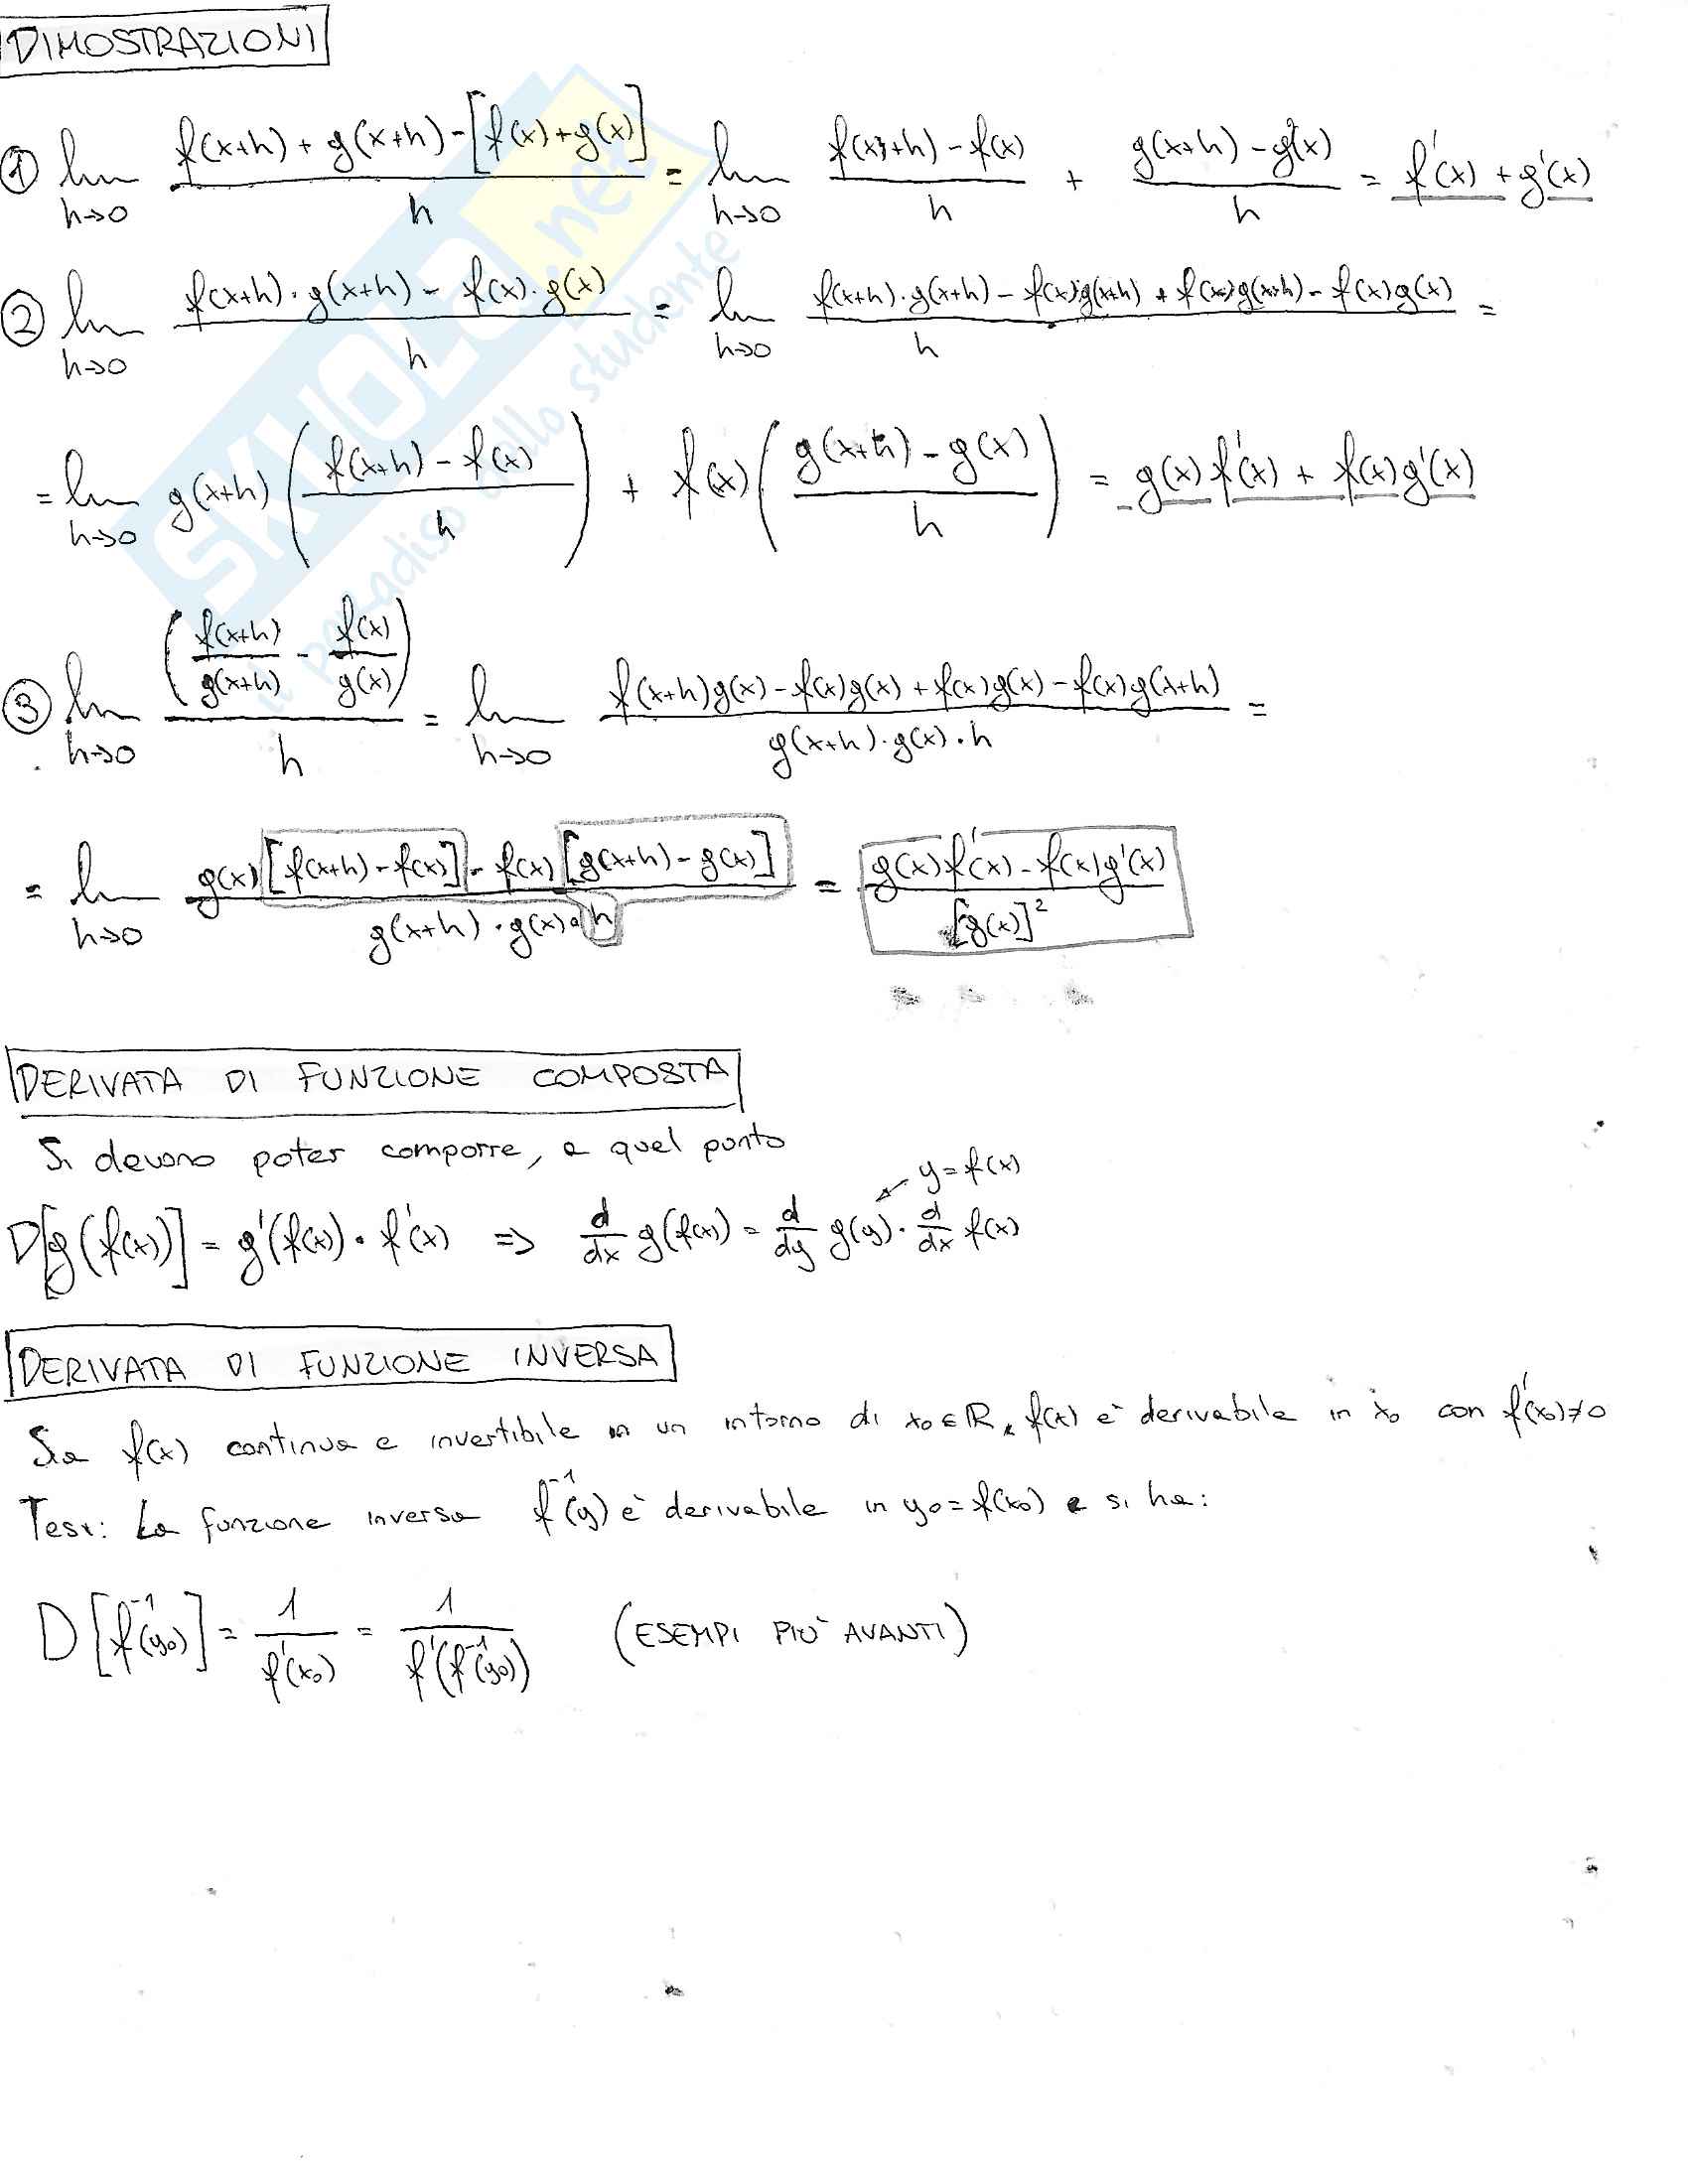 DIMOSTRAZIONI
① lim h→0 f(x+h) + g(x+h) - [f(x) + g(x)] / h = lim h→0 f(x+h) - f(x) / h + g(x+h) - g(x) / h = f'(x) + g'(x)
② lim h→0 f(x+h) · g(x+h) - f(x) · g(x) / h = lim h→0 f(x+h) · g(x+h) - f(x)g(x+h) + f(x)g(x+h) - f(x)g(x) / h =
= lim h→0 g(x+h) ( f(x+h) - f(x) / h ) + f(x) ( g(x+h) - g(x) / h ) = g(x)f'(x) + f(x)g'(x)
③ lim h→0 ( f(x+h) / g(x+h) - f(x) / g(x) ) / h = lim h→0 f(x+h)g(x) - f(x)g(x) + f(x)g(x) - f(x)g(x+h) / g(x+h) · g(x) · h =
= lim h→0 g(x) [f(x+h) - f(x)] - f(x) [g(x+h) - g(x)] / g(x+h) · g(x) · h = g(x)f'(x) - f(x)g'(x) / [g(x)]²
DERIVATA DI FUNZIONE COMPOSTA
Si devono poter comporre, a quel punto
y = f(x)
D[g(f(x))] = g'(f(x)) · f'(x) => d/dx g(f(x)) = d/dy g(y) · d/dx f(x)
DERIVATA DI FUNZIONE INVERSA
Sia f(x) continua e invertibile in un intorno di x₀ ∈ ℝ, f(x) è derivabile in x₀ con f'(x₀) ≠ 0
Tesi: La funzione inversa f⁻¹(y) è derivabile in y₀ = f(x₀) e si ha:
D [f⁻¹(y₀)] = 1 / f'(x₀) = 1 / f'(f⁻¹(y₀)) (ESEMPI PIÙ AVANTI)
SKUOLA.net
il paradiso dello studente